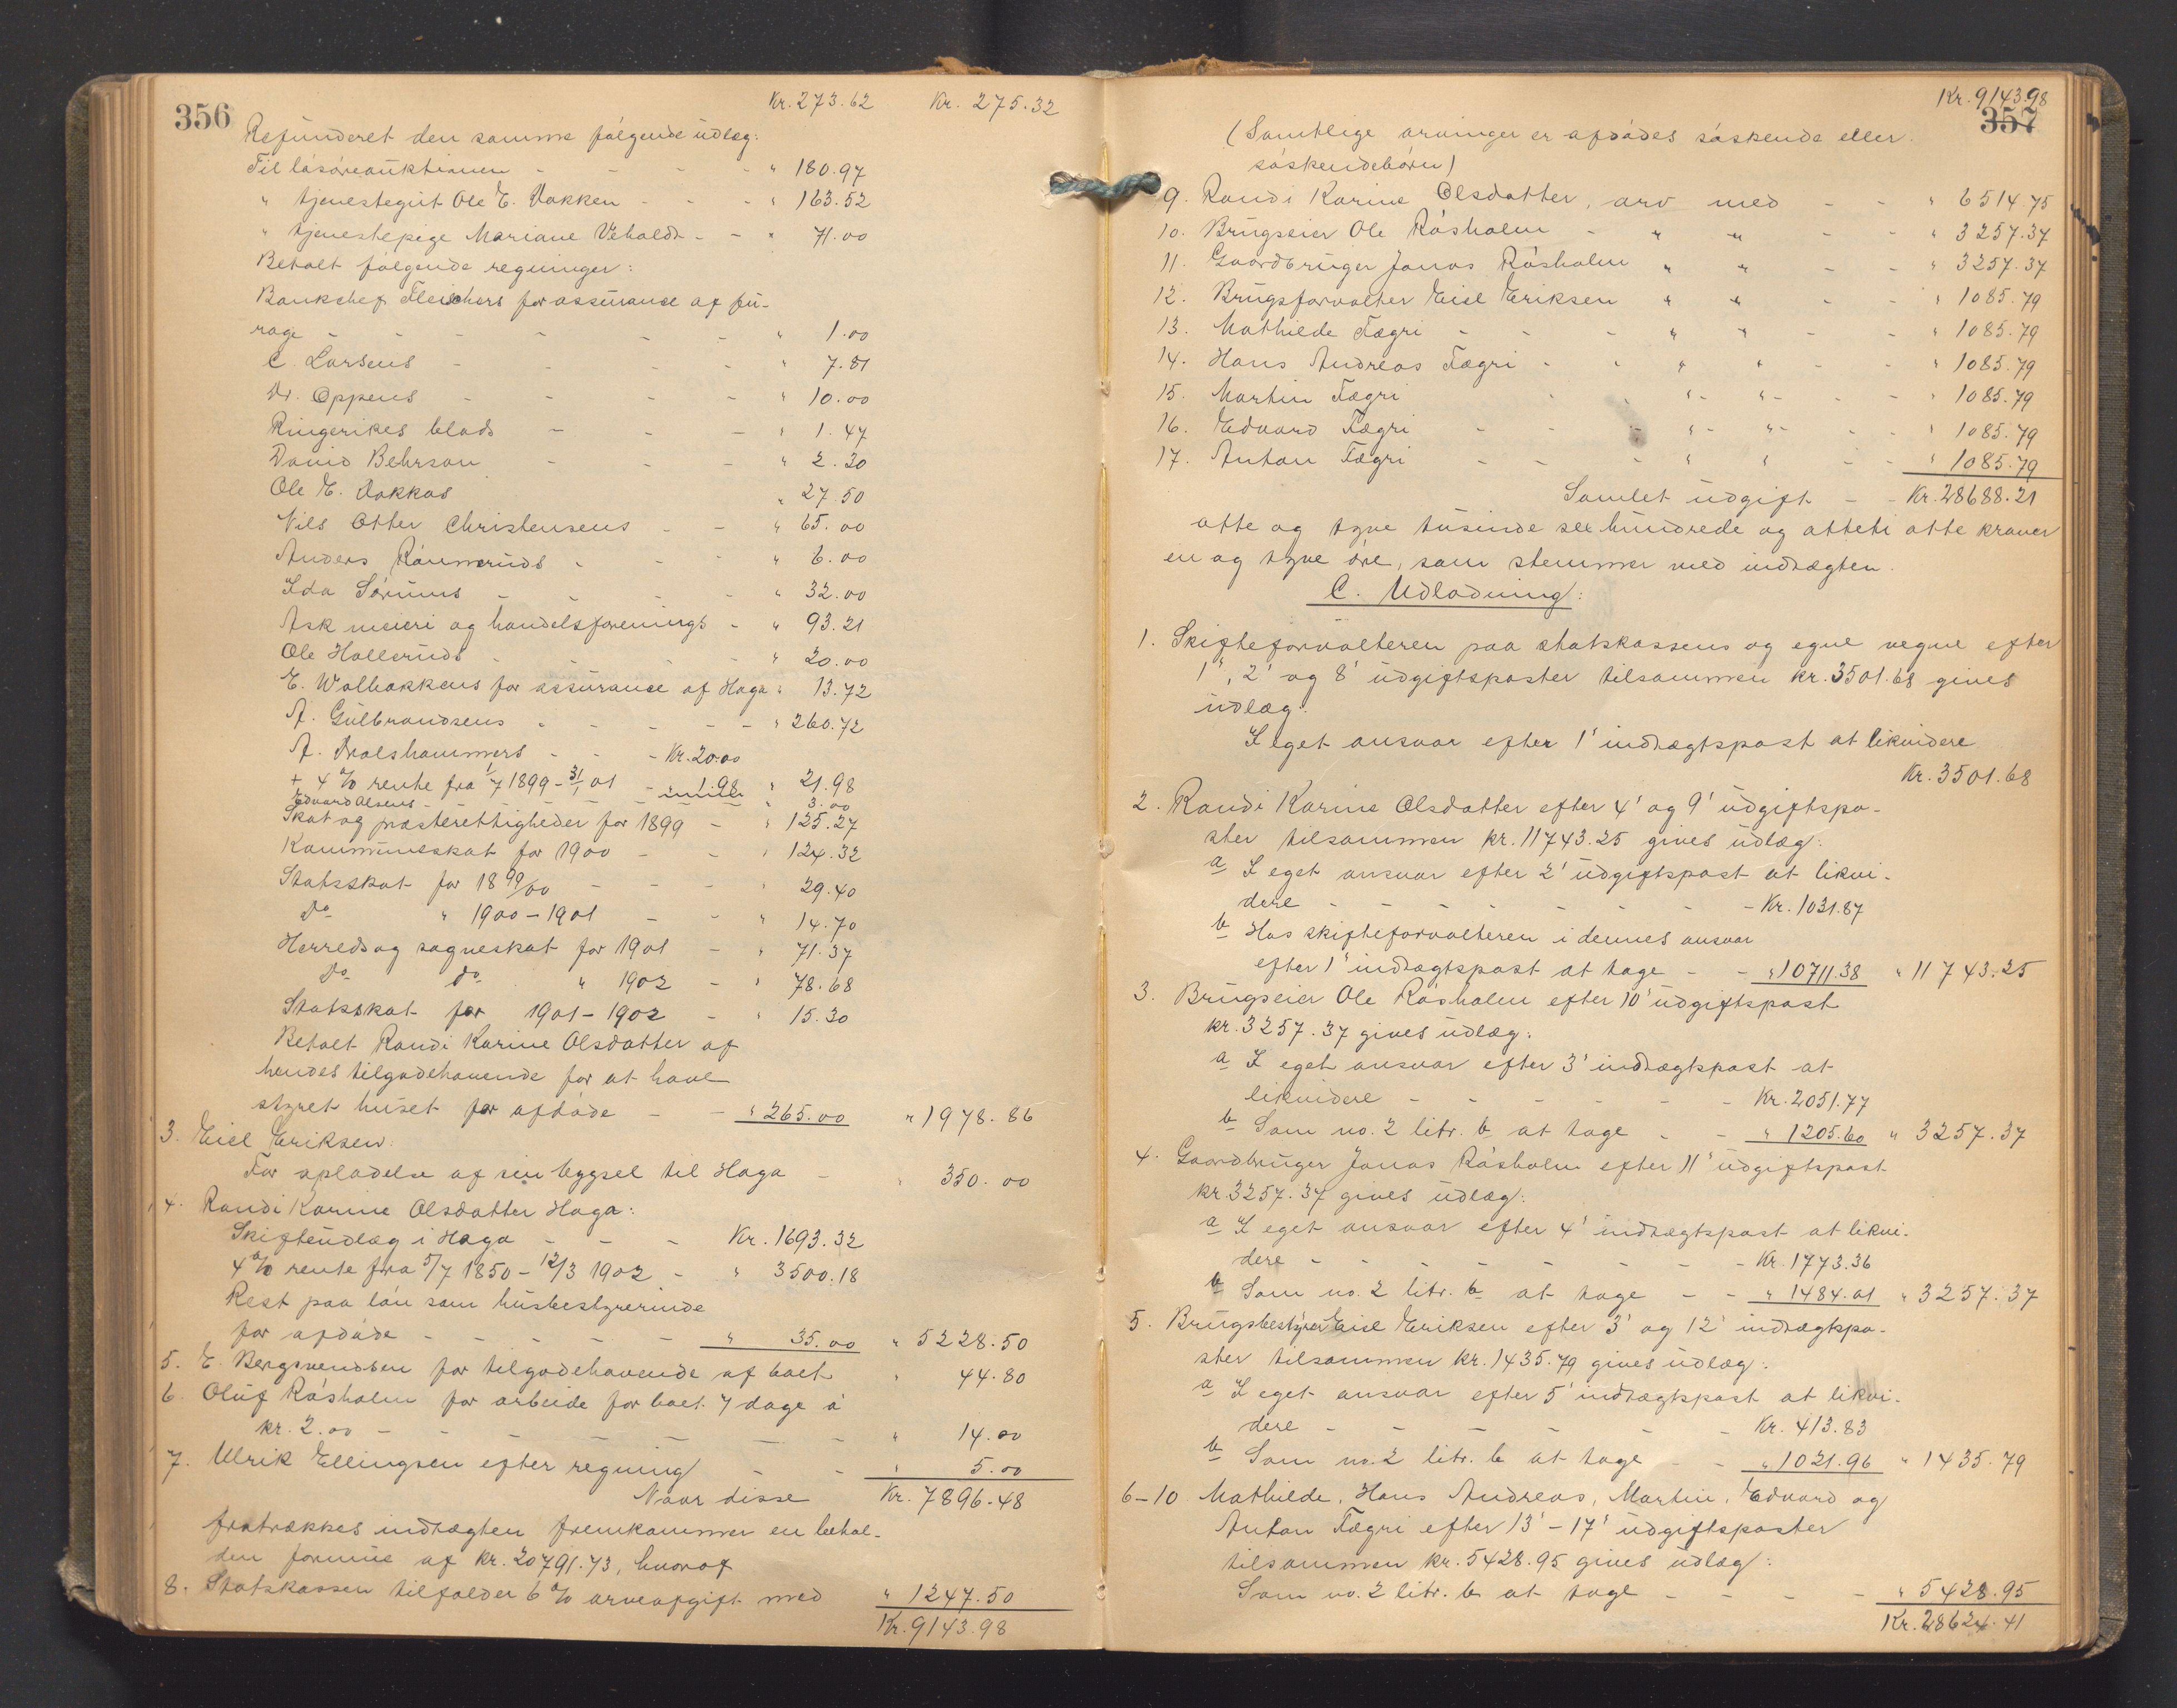 356
Kr. 273.62 Kr. 275.32
Refunderet den samme følgende udlæg:
Til løsøreauktionen - - - - " 180.97
" tjenestegut Ole E. Dokken - - - " 163.52
" tjenestepige Mariane Vebolds - - " 71.00
Betalt følgende regninger:
Bankchef Fleischers for assurance af fu-
rage - - - - - - " 1.00
C. Larsens - - - - " 7.81
Dr. Oppens - - - - " 10.00
Ringerikes blads - - - " 1.47
David Behrson - - - " 2.30
Ole E. Dokkas " 27.50
Nils Otter Christensens - - " 65.00
Anders Rønneruds - - - " 6.00
Ida Sørums - - - - " 32.00
Ask meieri og handelsforenings - " 93.21
Ole Halleruds - - - - " 20.00
E. Wolbakkens for assurance af Haga " 13.72
A. Gulbrandsens - - - - - " 260.72
A. Dralshammers - - - Kr. 20.00
+ 4 % rente fra 1/7 1899 - 31/1 01 - 1.98 " 21.98
Edvard Olsens - - - - - - - - " 3.00
Skat og præsterettigheder for 1899 - " 125.27
Kommuneskat for 1900 - - " 124.32
Statsskat for 1899/00 - - - " 29.40
Do " 1900-1901 - - " 14.70
Herreds og sogneskat for 1901 - " 71.37
Do do " 1902 - " 78.68
Statsskat for 1901-1902 - " 15.30
Betalt Randi Karine Olsdatter af
hendes tilgodehavende for at have
styret huset for afdøde - - " 265.00 " 1978.86
3. Eisl Eriksen:
For opladelse af sin bygsel til Haga - " 350.00
4. Randi Karine Olsdatter Haga:
Skifteudlæg i Haga - - - Kr. 1693.32
4 % rente fra 5/7 1850 - 12/3 1902 - " 3500.18
Rest paa løn som husbestyrerinde
for afdøde - - - - - " 35.00 " 5228.50
5. E. Bergsvendsen for tilgodehavende af boet " 44.80
6. Oluf Røsholm for arbeide for boet 7 dage á
kr. 2.00 - - - - - - - " 14.00
7. Ulrik Ellingsen efter regning - - " 5.00
Naar disse Kr. 7896.48
fratrækkes indtægten fremkommer en behol-
den formue af kr. 20791.73, hvoraf
8. Statskassen tilfalder 6 % arveafgift med " 1247.50
Kr. 9143.98
Kr. 9143.98
357
(Samtlige arvinger er afdødes søskende eller
søskendebørn)
9. Randi Karine Olsdatter, arv med - - " 6514.75
10. Brugseier Ole Røsholm - " " - - " 3257.37
11. Gaardbruger Jonas Røsholm " " - - " 3257.37
12. Brugsforvalter Eisl Eriksen " " - - " 1085.79
13. Mathilde Fægri - - - " " - - " 1085.79
14. Hans Andreas Fægri - - " " - - " 1085.79
15. Martin Fægri - - " - " - - - " 1085.79
16. Edvard Fægri - - - " - " - - - " 1085.79
17. Anton Fægri - - - " " - - " 1085.79
Samlet udgift - - Kr. 28688.21
otte og tyve tusinde sex hundrede og otteti otte kroner
en og tyve øre, som stemmer med indtægten.
C. Udlodning:
1. Skifteforvalteren paa statskassens og egne vegne efter
1', 2' og 8' udgiftsposter tilsammen kr. 3501.68 gives
udlæg:
I eget ansvar efter 1' indtægtspost at likvidere
Kr. 3501.68
2. Randi Karine Olsdatter efter 4' og 9' udgiftspo-
ster tilsammen kr. 11743.25 gives udlæg:
a I eget ansvar efter 2' udgiftspost at likvi-
dere - - - - - - - - Kr. 1031.87
b Hos skifteforvalteren i dennes ansvar
efter 1' indtægtspost at tage - - " 10711.38 " 11743.25
3. Brugseier Ole Røsholm efter 10' udgiftspost
kr. 3257.37 gives udlæg:
a I eget ansvar efter 3' indtægtspost at
likvidere - - - - - - Kr. 2051.77
b Som no. 2 litr. b at tage - - " 1205.60 " 3257.37
4. Gaardbruger Jonas Røsholm efter 11' udgiftspost
kr. 3257.37 gives udlæg:
a I eget ansvar efter 4' indtægtspost at likvi-
dere - - - - - - - - Kr. 1773.36
b Som no. 2 litr. b at tage - - " 1484.01 " 3257.37
5. Brugsbestyrer Eisl Eriksen efter 3' og 12' indtægtspo-
ster tilsammen kr. 1435.79 gives udlæg:
a I eget ansvar efter 5' indtægtspost at likvi-
dere - - - - - - - Kr. 413.83
b Som no. 2 litr. b at tage - - " 1021.96 " 1435.79
6-10 Mathilde, Hans Andreas, Martin, Edvard og
Anton Fægri efter 13' - 17' udgiftsposter
tilsammen kr. 5428.95 gives udlæg:
Som no. 2 litr. b at tage - - - - " 5428.95
Kr. 28624.41